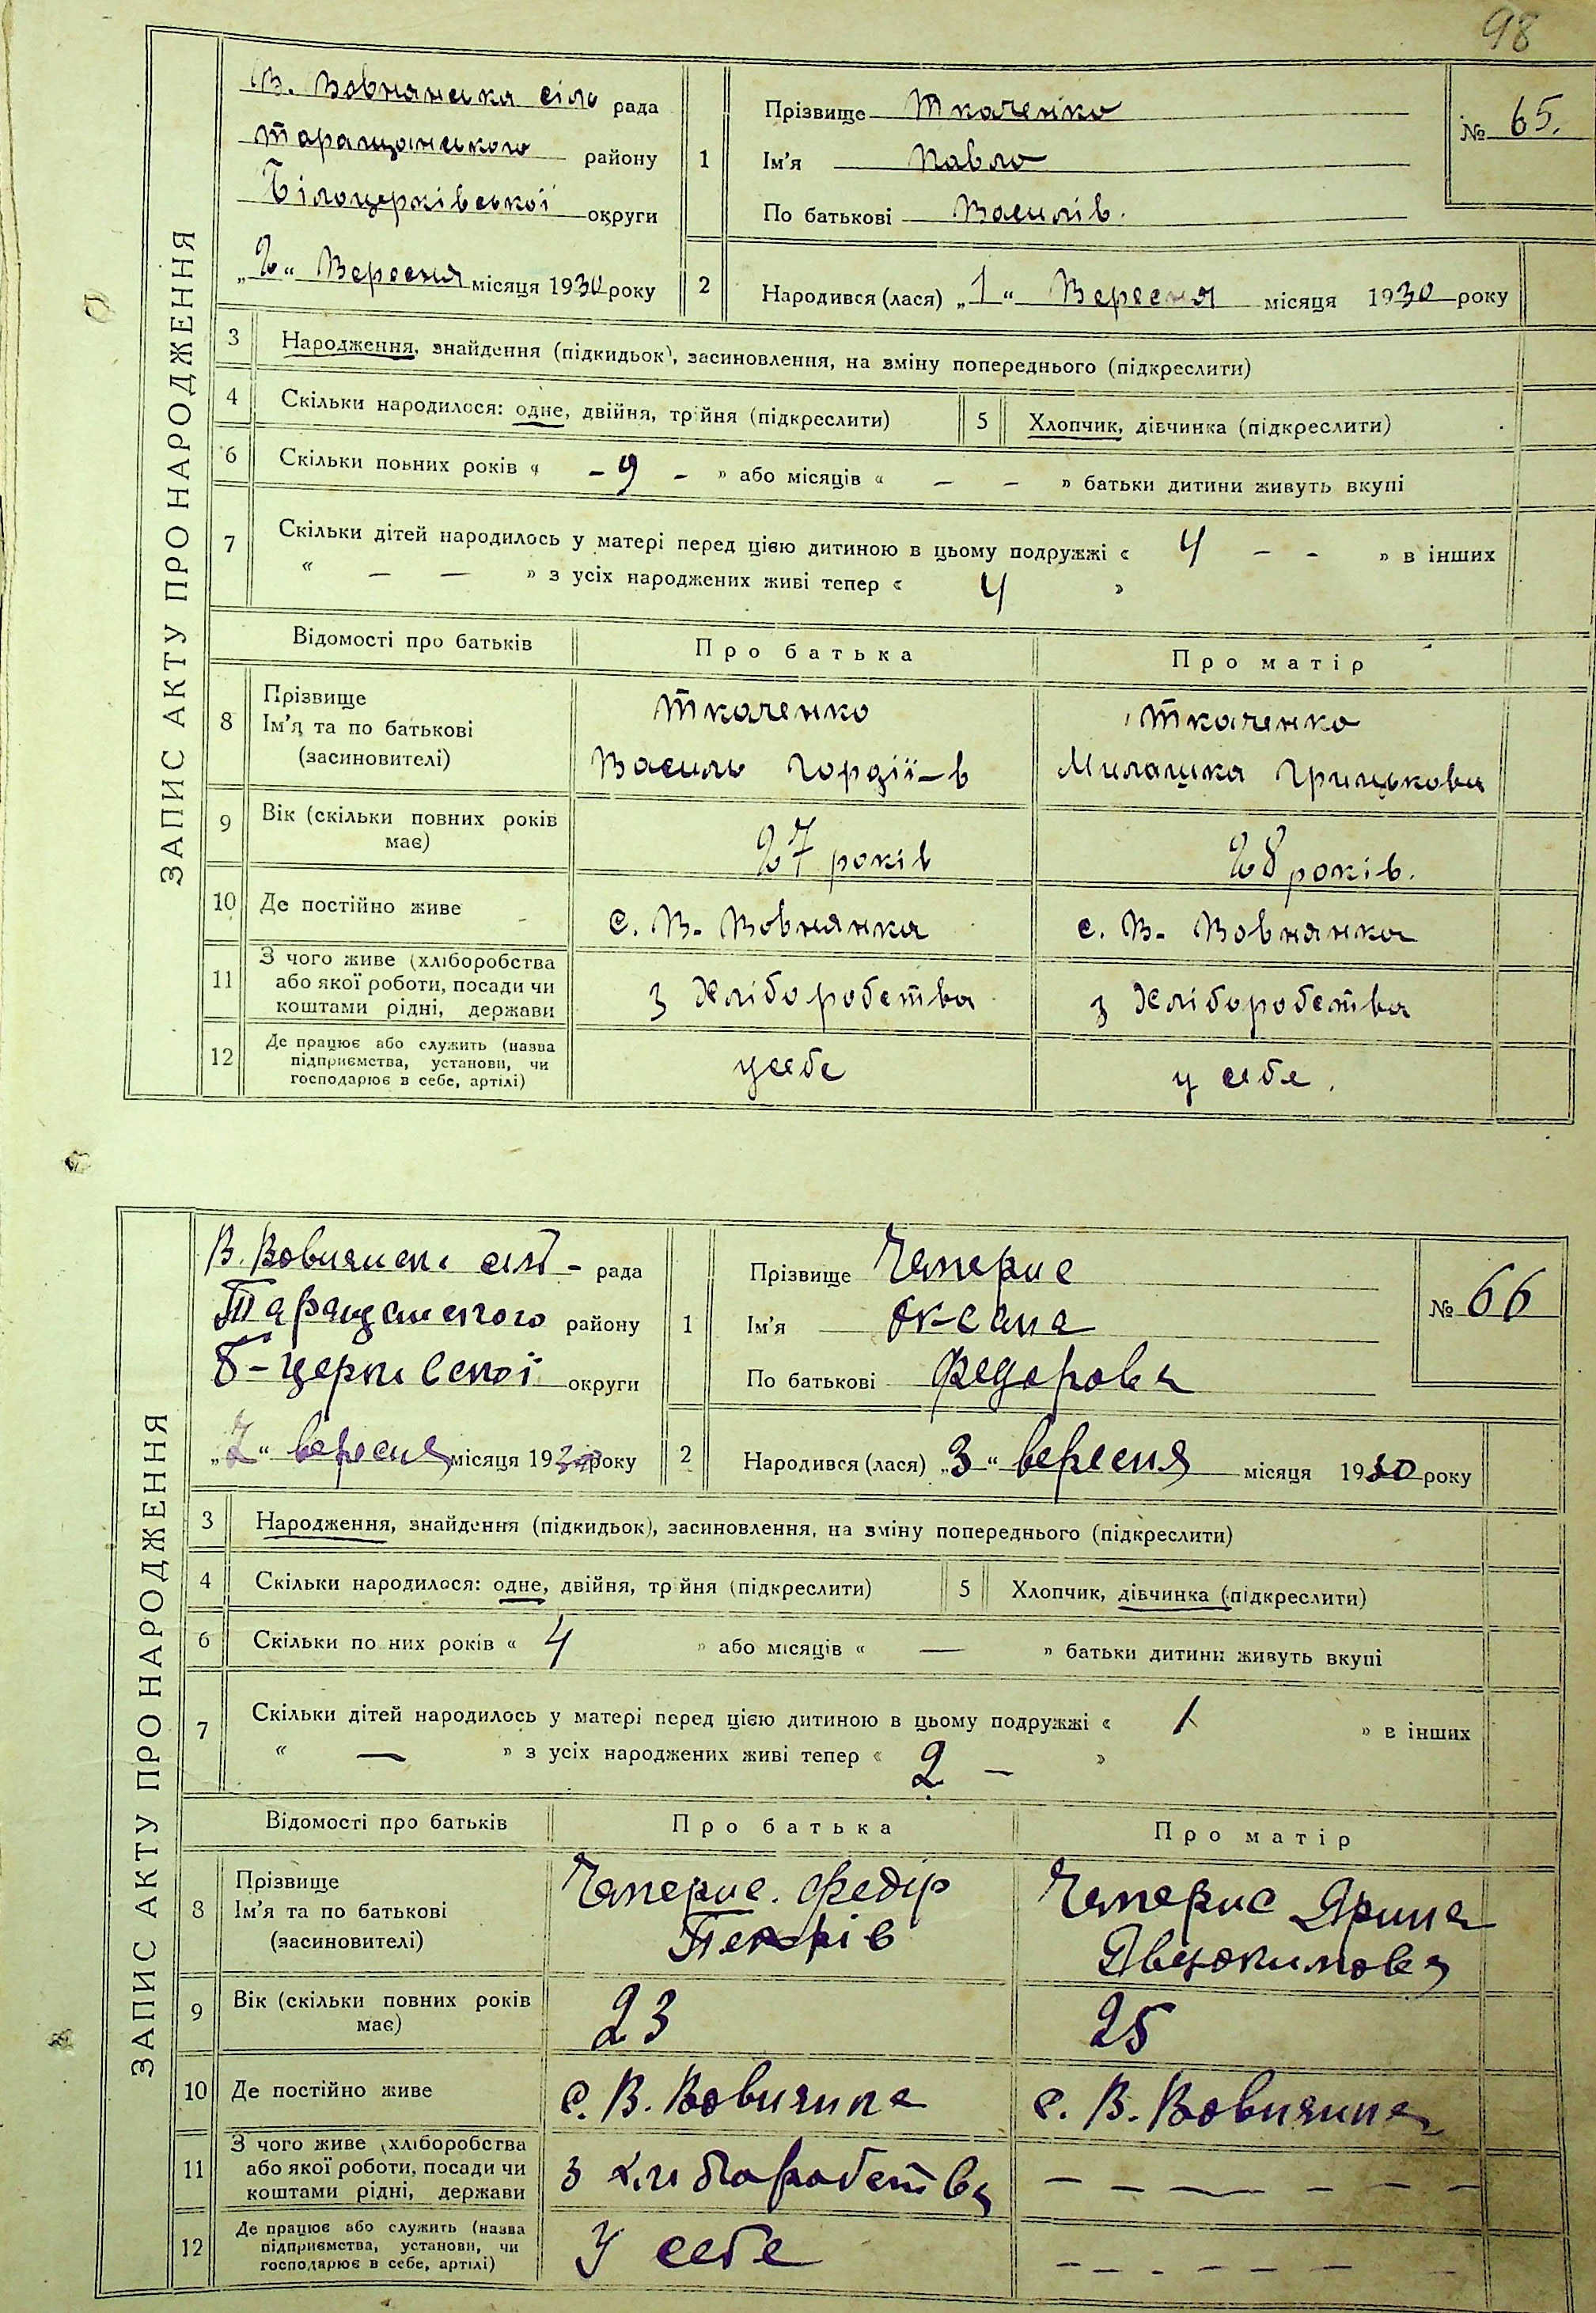 98
ЗАПИС АКТУ ПРО НАРОДЖЕННЯ
В. Вовнянська сіль рада
Таращанського району
Білоцерківської округи
„2“ Вересня місяця 1930 року
1 Прізвище Ткаченко
Ім'я Павло
По батькові Василів.
№ 65.
2 Народився (лася) „1“ Вересня місяця 1930 року
3 Народження, знайдення (підкидьок), засиновлення, на зміну попереднього (підкреслити)
4 Скільки народилося: одне, двійня, трійня (підкреслити) 5 Хлопчик, дівчинка (підкреслити)
6 Скільки повних років « - 9 - » або місяців « - - » батьки дитини живуть вкупі
7 Скільки дітей народилось у матері перед цією дитиною в цьому подружжі « 4 - - » в інших
« — — » з усіх народжених живі тепер « 4 »
Відомості про батьків Про батька Про матір
8 Прізвище
Ім'я та по батькові
(засиновителі)
Ткаченко
Василь Гордії-в
Ткаченко
Милашка Грицькова
9 Вік (скільки повних років має) 27 років 28 років.
10 Де постійно живе с. В. Вовнянка с. В. Вовнянка
11 З чого живе (хліборобства
або якої роботи, посади чи
коштами рідні, держави
з Хліборобства з Хліборобства
12 Де працює або служить (назва
підприємства, установи, чи
господарює в себе, артілі)
у себе у себе.
ЗАПИС АКТУ ПРО НАРОДЖЕННЯ
В. Вовнянсь сіль- рада
Таращанського району
Б-церківської округи
„2“ вересня місяця 1930 року
1 Прізвище
Ім'я Оксана
По батькові Федорова
№ 66
2 Народився (лася) „3“ вересня місяця 1930 року
3 Народження, знайдення (підкидьок), засиновлення, на зміну попереднього (підкреслити)
4 Скільки народилося: одне, двійня, трійня (підкреслити) 5 Хлопчик, дівчинка (підкреслити)
6 Скільки по них років « 4 » або місяців « — » батьки дитини живуть вкупі
7 Скільки дітей народилось у матері перед цією дитиною в цьому подружжі « 1 » в інших
« — » з усіх народжених живі тепер « 2 — »
Відомості про батьків Про батька Про матір
8 Прізвище
Ім'я та по батькові
(засиновителі)
Федір
Петрів
Ярина
Явдокимова
9 Вік (скільки повних років має) 23 25
10 Де постійно живе с. В. Вовнянка с. В. Вовнянка
11 З чого живе (хліборобства
або якої роботи, посади чи
коштами рідні, держави
з хліборобства — — — — — —
12 Де працює або служить (назва
підприємства, установи, чи
господарює в себе, артілі)
У себе — — - — — — —